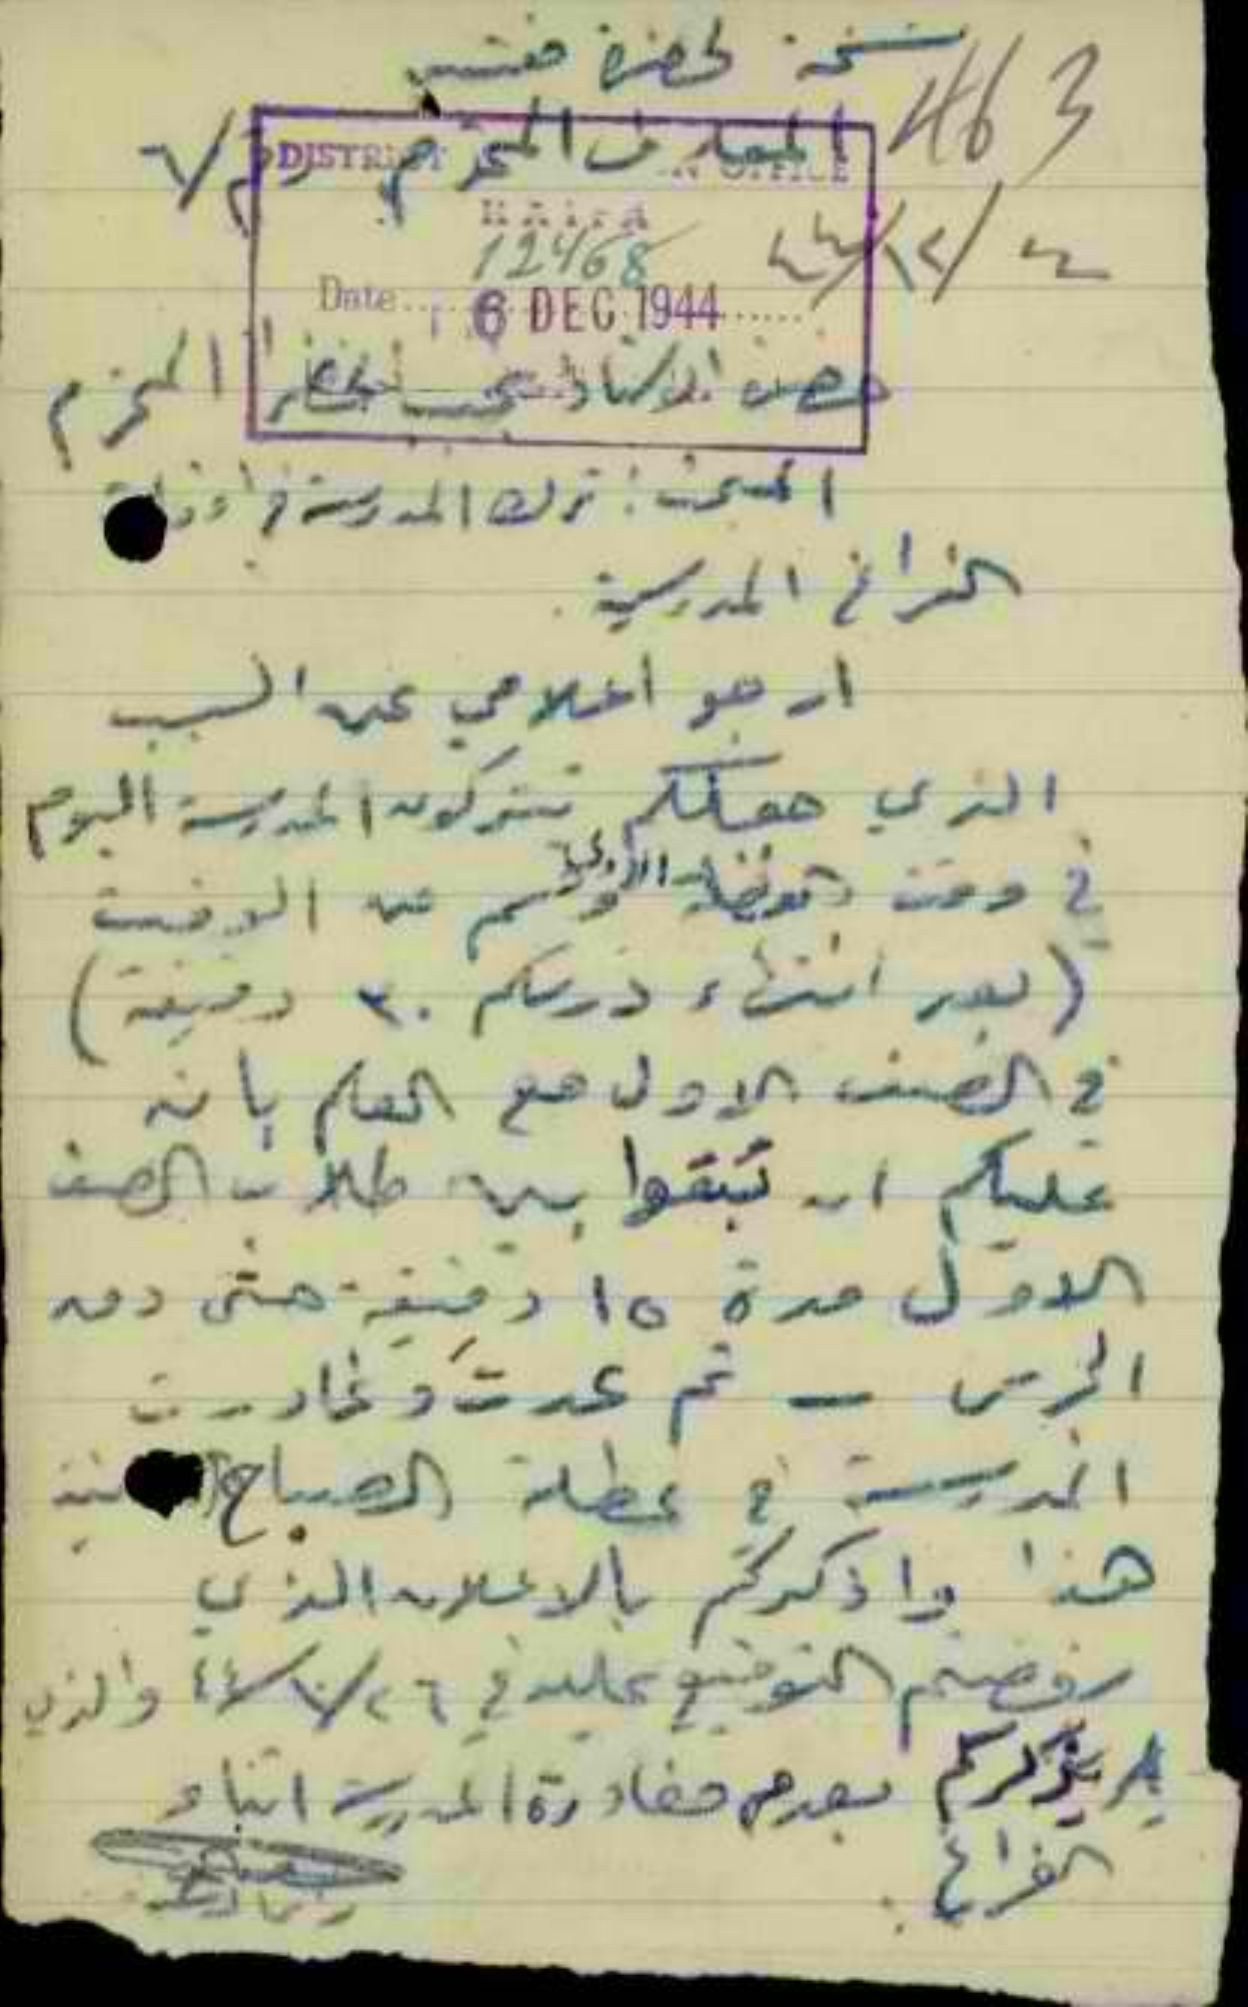 نسخة لحضرة مفتش
463
المعارف المحترم
DISTRICT OFFICE
HAIFA
12468
Date 6 DEC 1944
حضرة الاستاذ نجيب المحترم
المبحث: ترك المدرسة في اوقات
الفراغ المدرسية.
ارجو اعلامي عن السبب
الذي جعلكم تتركون المدرسة اليوم
في وقت الاولى من الوقت
(بعد انتهاء درسكم ٣٠ دقيقة)
في الصف الاول مع العلم بانه
عليكم ان تبقوا بين طلاب الصف
الاول مدة ١٥ دقيقة حتى دق
الجرس — ثم عدت وغادرت
المدرسة في عطلة الصباح
هذا واذكركم بالاعلان الذي
رفضتم التوقيع عليه في والذي
يذكركم بعدم مغادرة المدرسة اثناء
الفراغ.